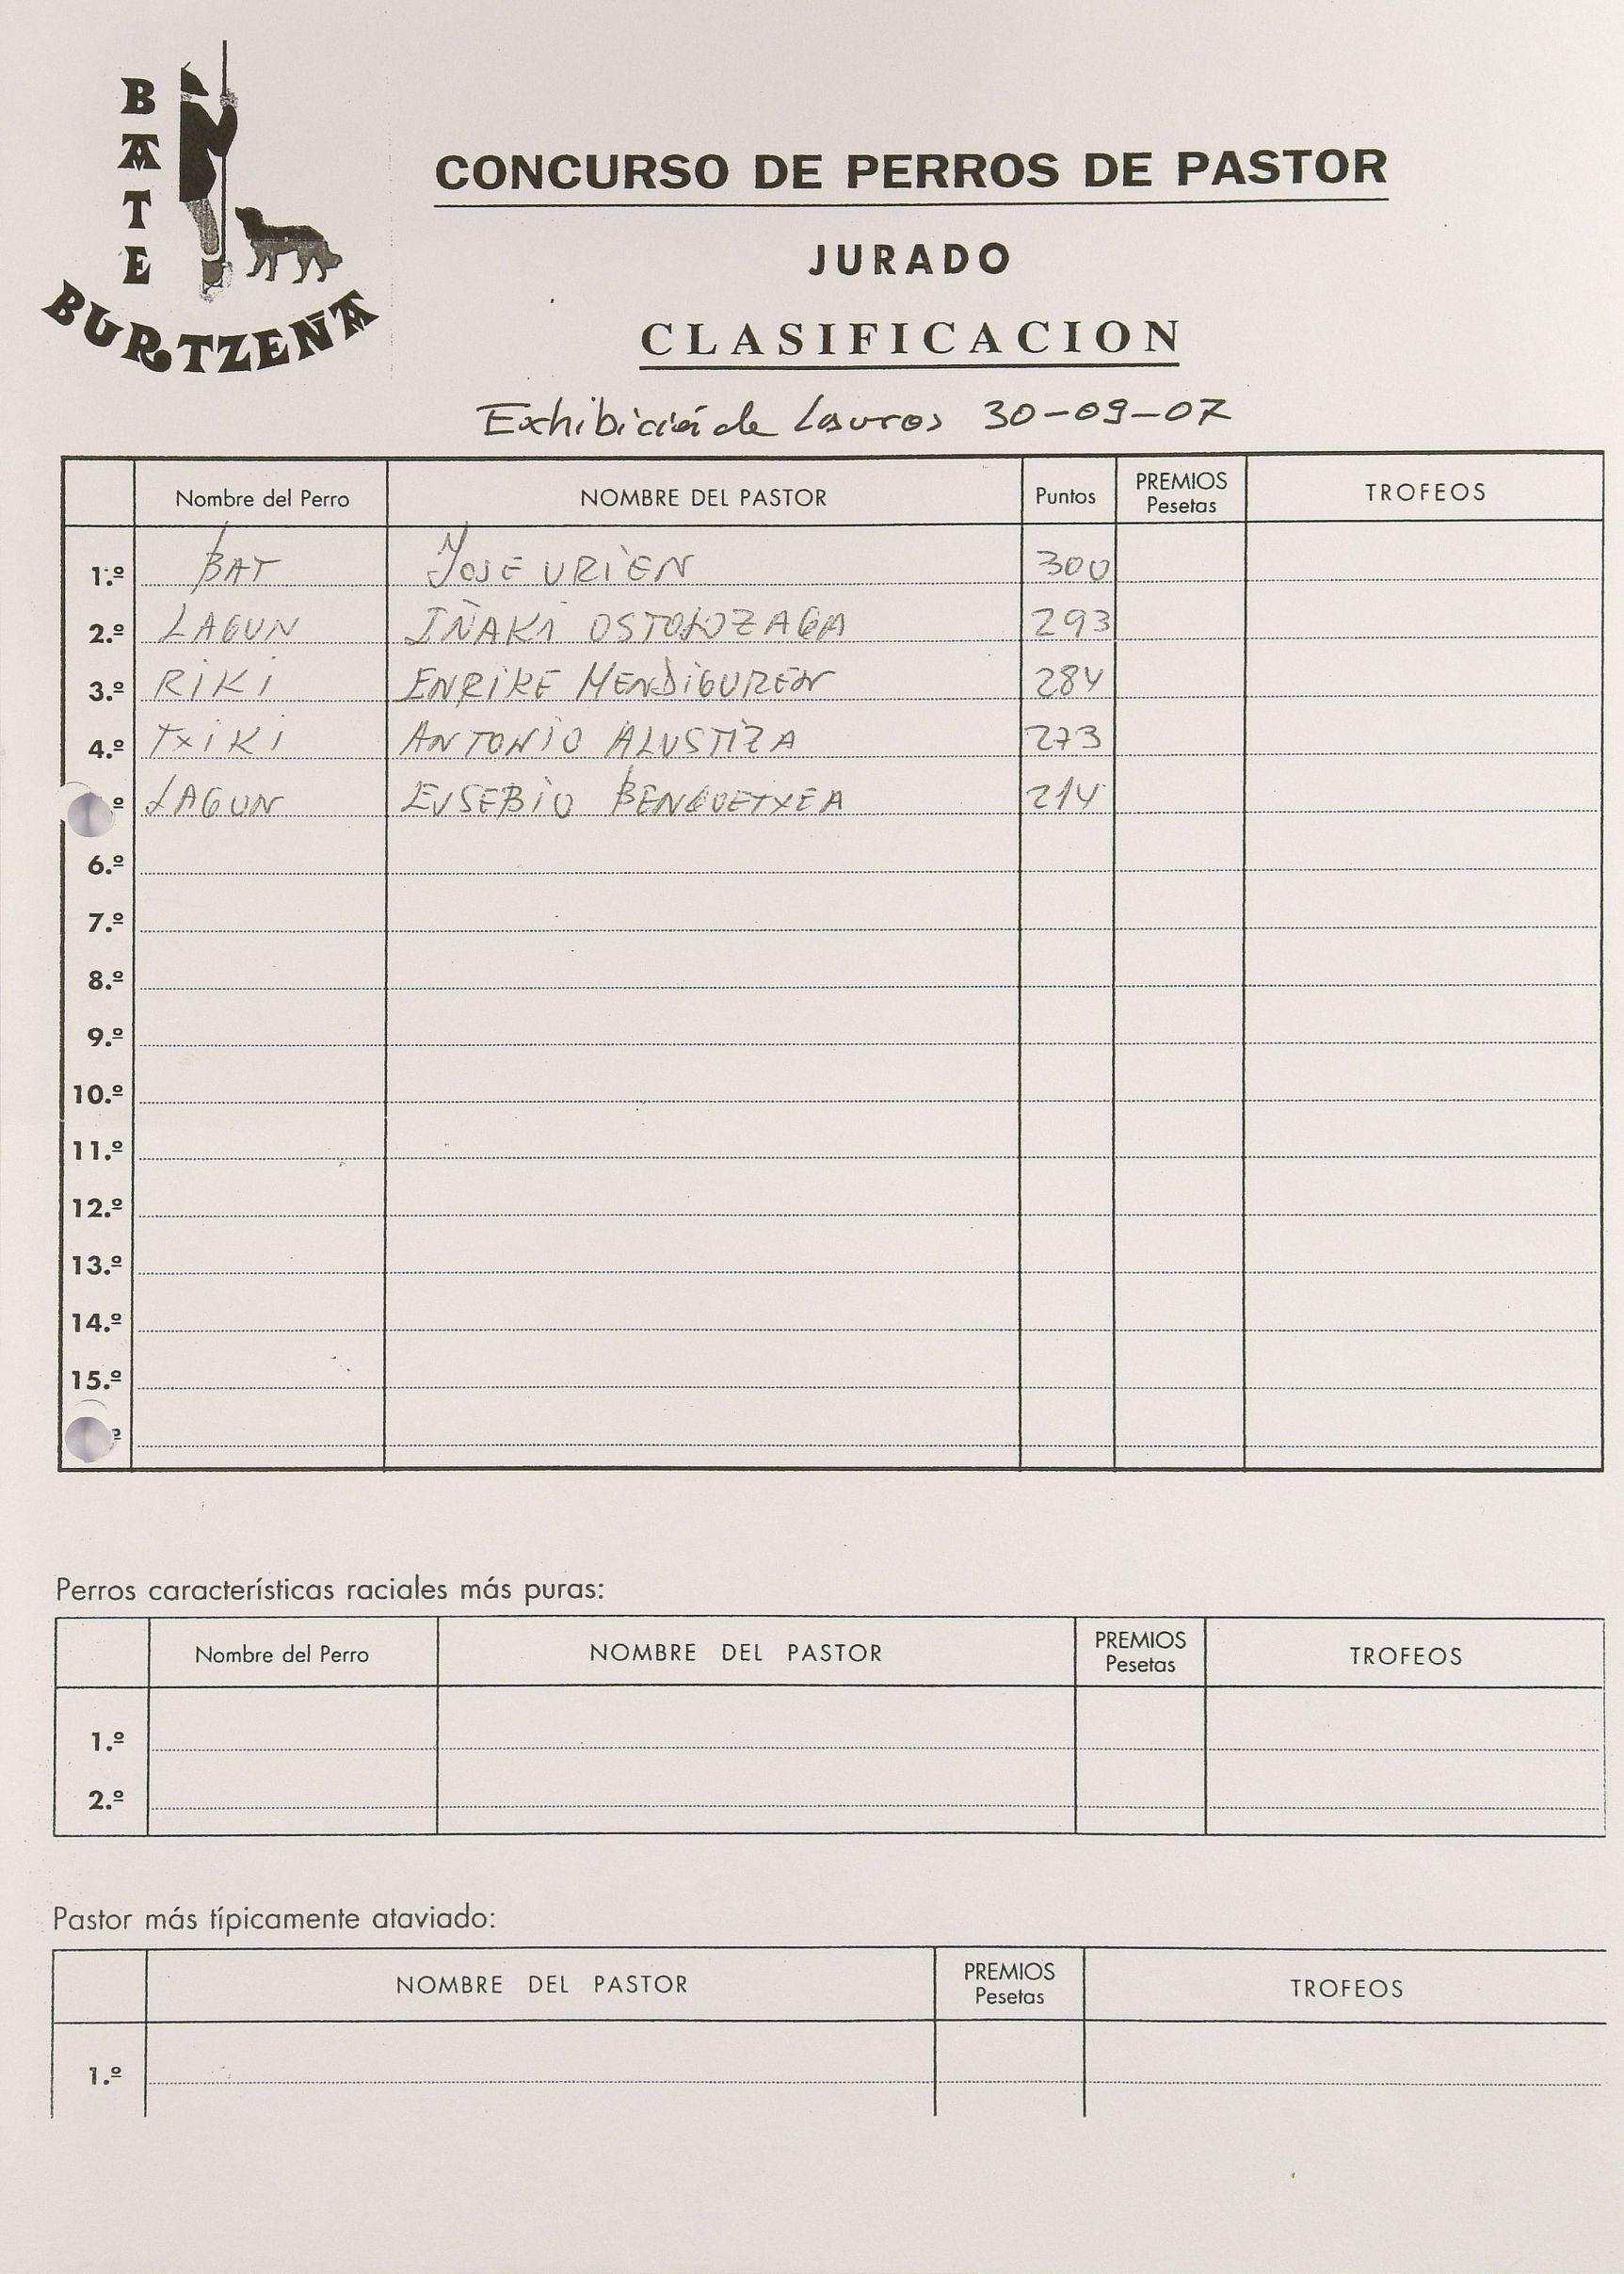 BATE
BURTZEÑA
CONCURSO DE PERROS DE PASTOR
JURADO
CLASIFICACION
Exhibición de Lauros 30-09-07
Nombre del Perro NOMBRE DEL PASTOR Puntos PREMIOS Pesetas TROFEOS
1.º BAT JOSE URIEN 300
2.º LAGUN IÑAKI OSTOLOZAGA 293
3.º RIKI ENRIKE MENDIGUREN 284
4.º TXIKI ANTONIO ALUSTIZA 273
º LAGUN EUSEBIO BENGOETXEA 214
6.º
7.º
8.º
9.º
10.º
11.º
12.º
13.º
14.º
15.º
º
Perros características raciales más puras:
Nombre del Perro NOMBRE DEL PASTOR PREMIOS Pesetas TROFEOS
1.º
2.º
Pastor más típicamente ataviado:
NOMBRE DEL PASTOR PREMIOS Pesetas TROFEOS
1.º